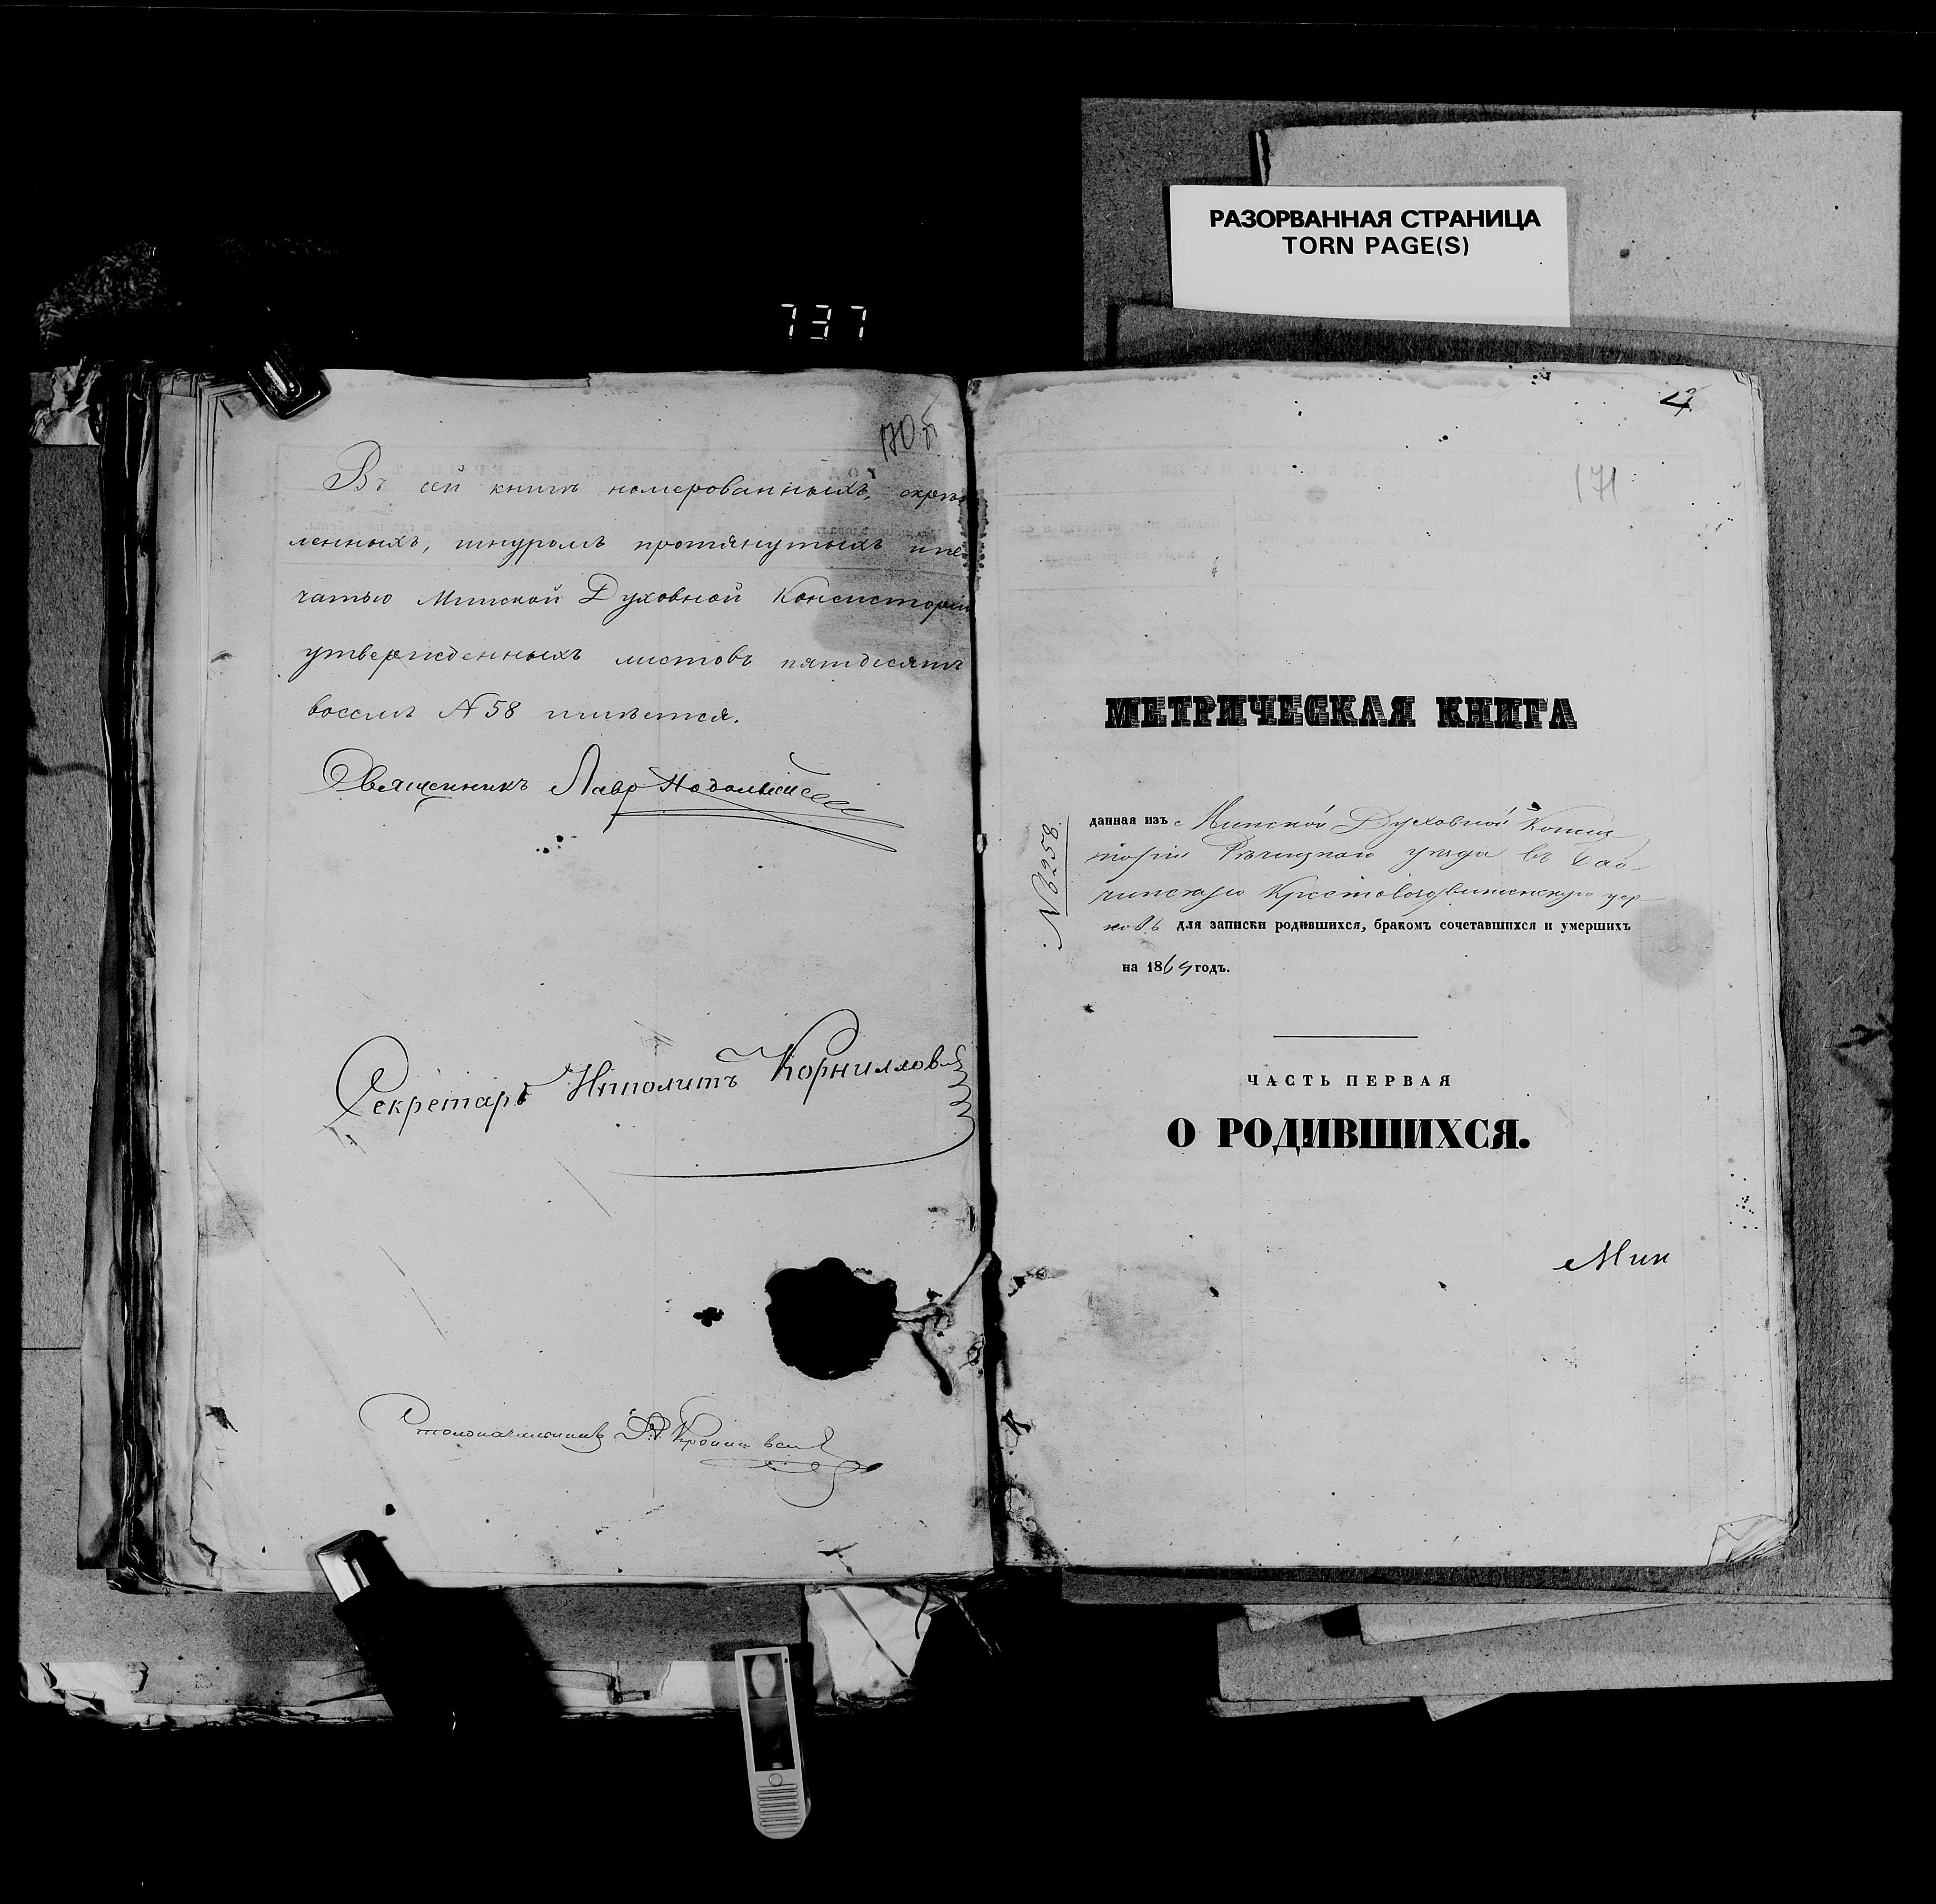 РАЗОРВАННАЯ СТРАНИЦА
TORN PAGE(S)
737
Въ сей книгѣ номерованныхъ, скрѣп
ленныхъ, шнуромъ протянутыхъ и пе
чатью Минской Духовной Консисторіи
утвержденныхъ листовъ пятдесятъ
восемь № 58 имѣется.
Священникъ Лавр
Секретарь Иполитъ Корниллович
Столоначальникъ
4
171
МЕТРИЧЕСКАЯ КНИГА
№ 6258
данная изъ Минской Духовной Консис
торіи Рѣчицкаго уѣзда въ
Крестовоздвиженскую цер
ковь для записки родившихся, бракомъ сочетавшихся и умершихъ
на 1864 годъ.
ЧАСТЬ ПЕРВАЯ
О РОДИВШИХСЯ.
Мин